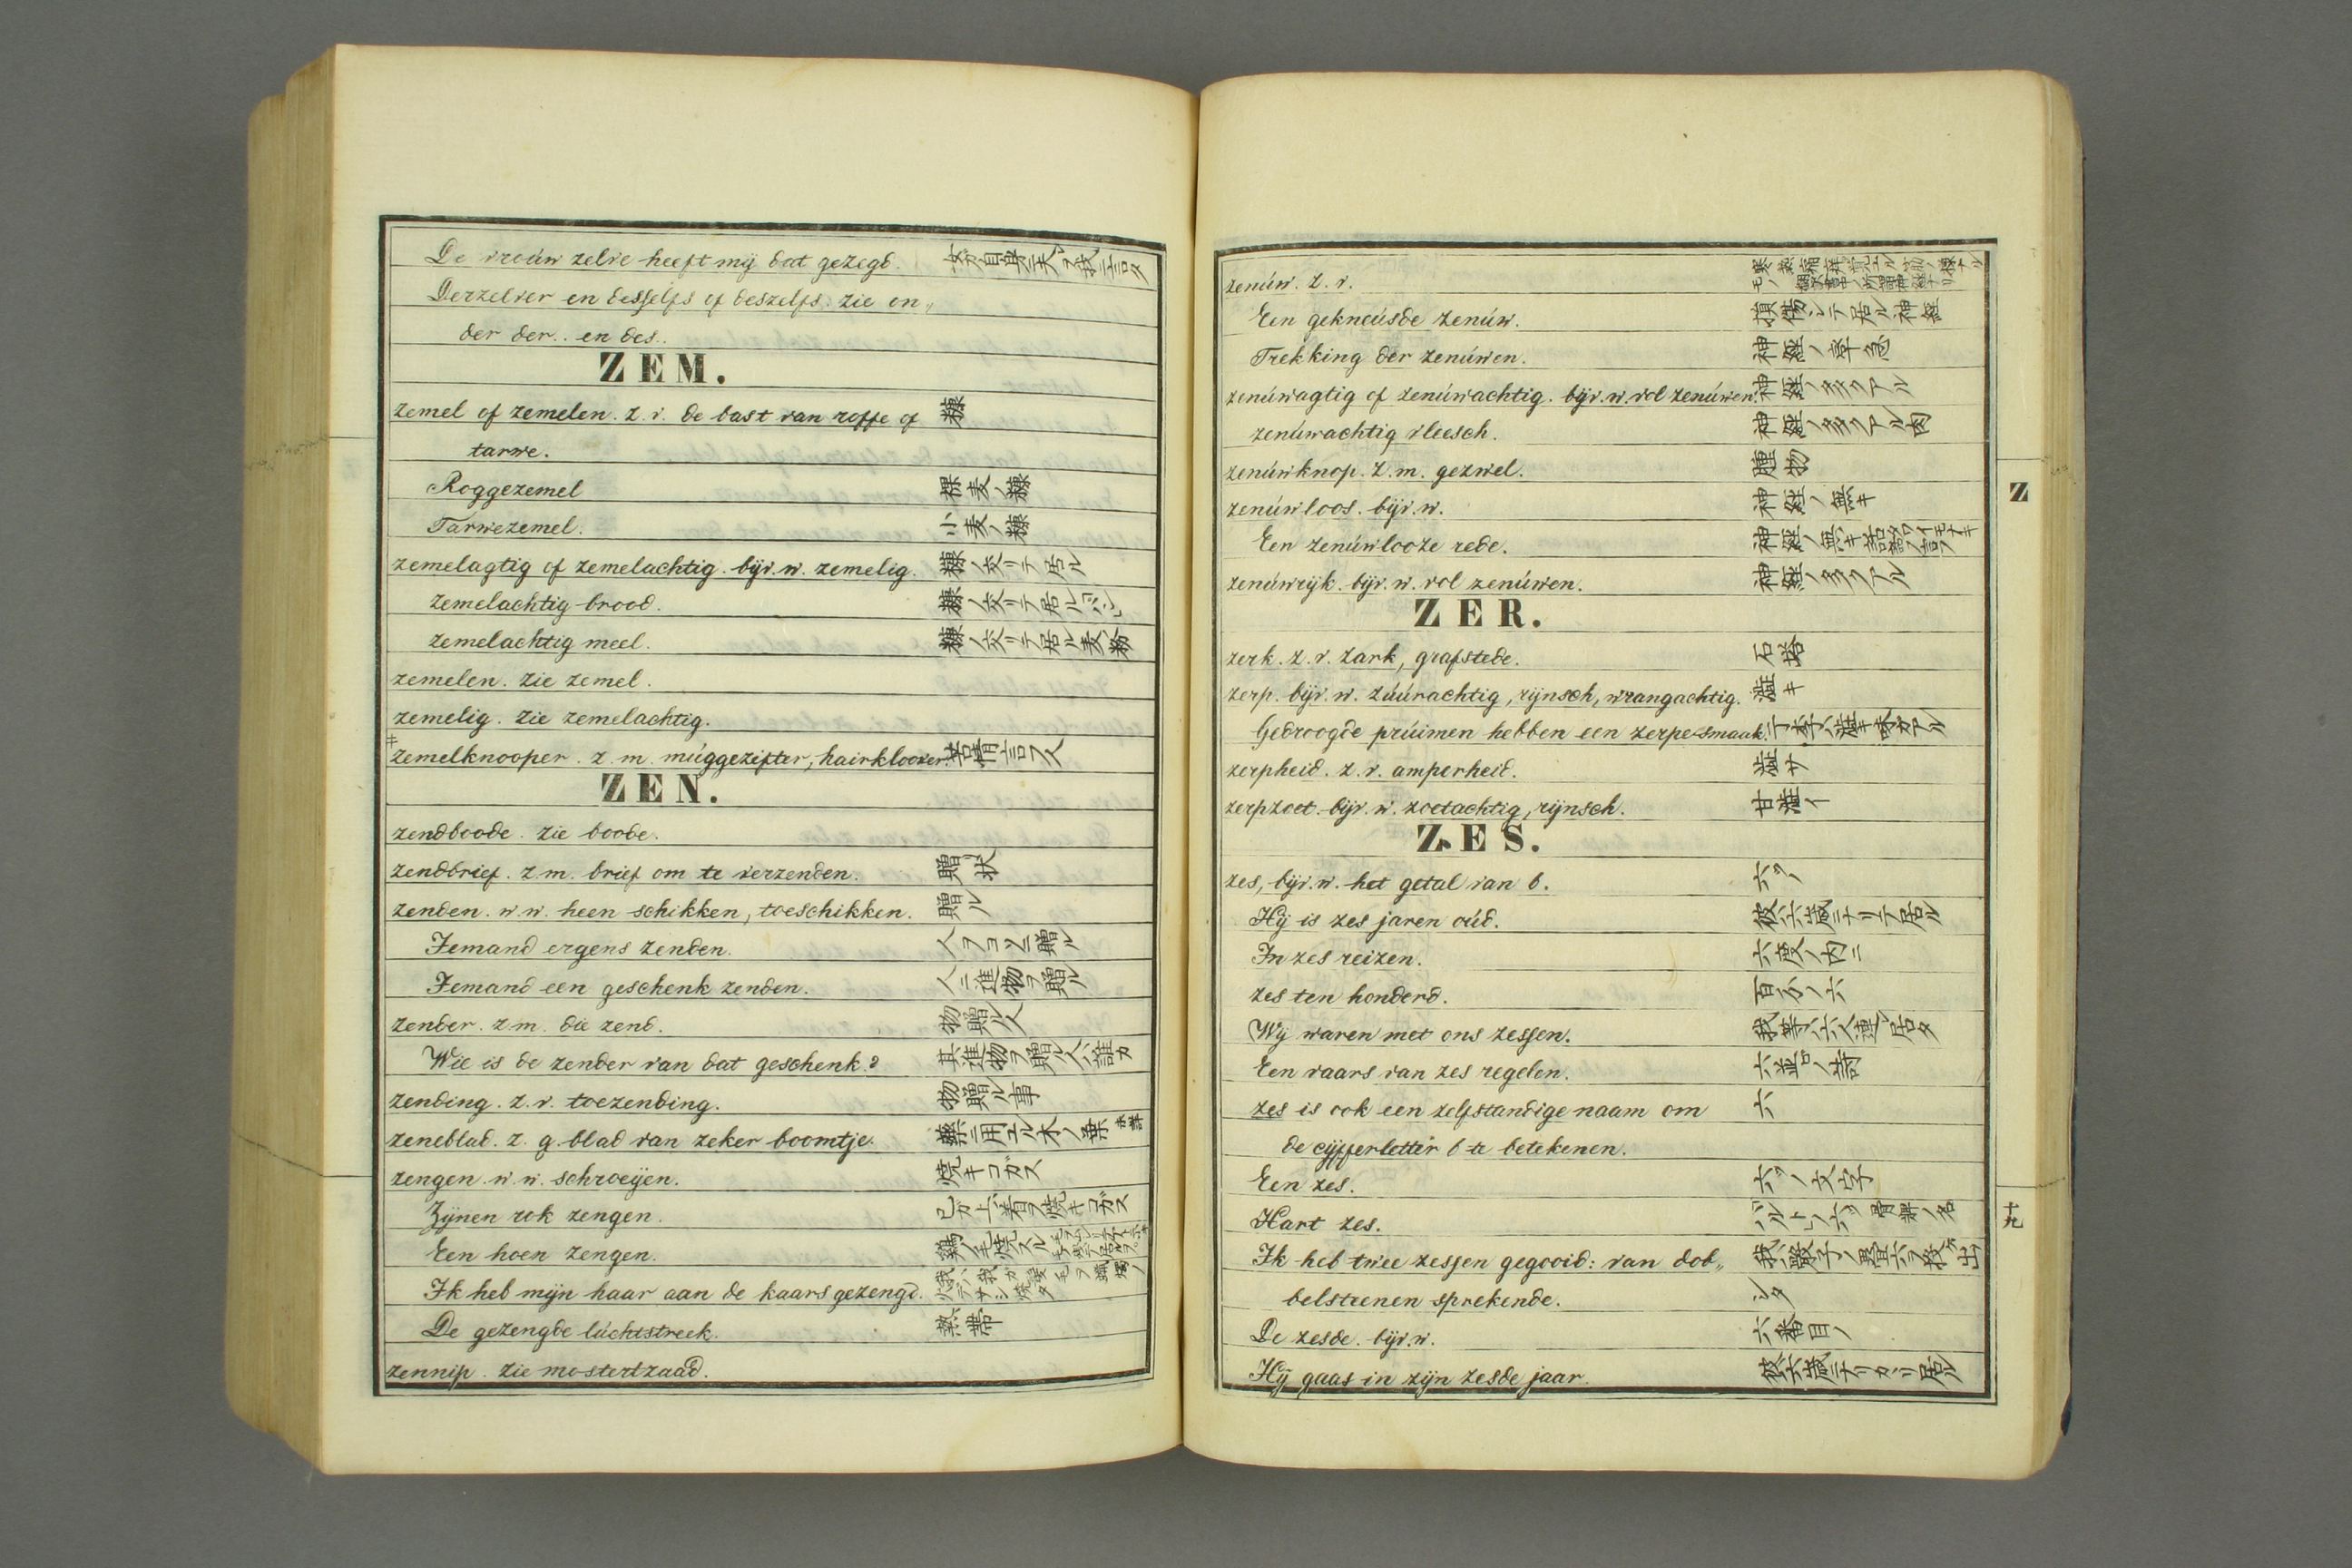 De vroúw zelve heeft mij dat gezegd. 女ガ自身ニ夫ヲ我ニ言タ
Derzelver en desselfs of deszelfs. zie on„
der der.. en des..
ZEM.
zemel of zemelen. z. v. de bast van roffe of 糠
tarwe.
Roggezemel 裸麦ノ糠
Tarwezemel. 小麦ノ糠
zemelagtig of zemelachtig. bijv. w. zemelig. 糠ノ交リテ居ル
zemelachtig brood. 糠ノ交リテ居ルパン
zemelachtig meel. 糠ノ交リテ居ル麦粉
zemelen. zie zemel.
zemelig. zie zemelachtig.
zemelknooper. z. m. múggezifter, hairkloover. 苦情言フ人
ZEN.
zendboode. zie boode.
zendbrief. z. m. brief om te verzenden. 贈状
zenden. w. w. heen schikken, toeschikken. 贈ル
Iemand ergens zenden. 人ヲヨソニ贈ル
Iemand een geschenk zenden. 人ニ進物ヲ贈ル
zender. z. m. die zend. 物贈ル人
Wie is de zender van dat geschenk? 其進物ヲ贈ル人ハ誰カ
zending. z. v. toezending. 物贈ル事
zeneblad. z. g. blad van zeker boomtje. 薬ニ用エル木ノ葉
zengen. w. w. schroeijen. 焼キコガス
Zijnen rok zengen. 己ガ上着ヲ焼キコガス
Een hoen zengen. 鶏ノ毛焼スル
Ik heb mijn haar aan de kaars gezengd. 我ハ我カ髪毛ヲ蠟燭ノ火ニテ
De gezengde lúchtstreek. 熱帯
zennip. zie mostertzaad.
zenúw. z. v.
Een gekneúsde zenúw. 損傷シテ居ル神経
Trekking der zenúwen. 神経ノ牽急
zenúwagtig of zenúwachtig. bijv. w. vol zenúwen. 神経ノ多クアル
zenúwachtig vleesch. 神経ノ多クアル肉
zenúwknop. z. m. gezwel. 腫物
zenúwloos. bijv. w. 神経ノ無キ
Een zenúwlooze rede. 神経ノ無キ
zenúwrijk. bijv. w. vol zenúwen. 神経ノ多クアル
ZER.
zerk. z. v. zark, grafstede. 石塔
zerp. bijv. w. zúúrachtig, rijnsch, wrangachtig. 澁キ
Gedroogde prúimen hebben een zerpe smaak. 干李ハ澁キ味カアル
zerpheid. z. v. amperheid. 澁サ
zerpzoet. bijv. w. zoetachtig, rijnsch. 甘澁イ
ZES.
zes, bijv. w. het getal van 6. 六ツノ
Hij is zes jaren oúd. 彼ハ六歳ニナリテ居ル
In zes reizen. 六度ノ内ニ
zes ten honderd. 百分ノ六
Wij waren met ons zessen. 我等ハ六人連レ居タ
Een vaars van zes regelen. 六並ヒノ詩
zes is ook een zelfstandige naam om 六
de cijfferletter 6 te betekenen.
Een zes. 六ツノ文字
Hart zes. ハルトノ六 骨牌ノ名
Ik heb twee zessen gegooid: van dob„ 我ハ骰子ノ畳六ヲ投ケ出
belsteenen sprekende. シタ
De zesde. bijv. w. 六番目ノ
Hij gaas in zijn zesde jaar. 彼六歳ニナリカヽリ居ル
Z
十九